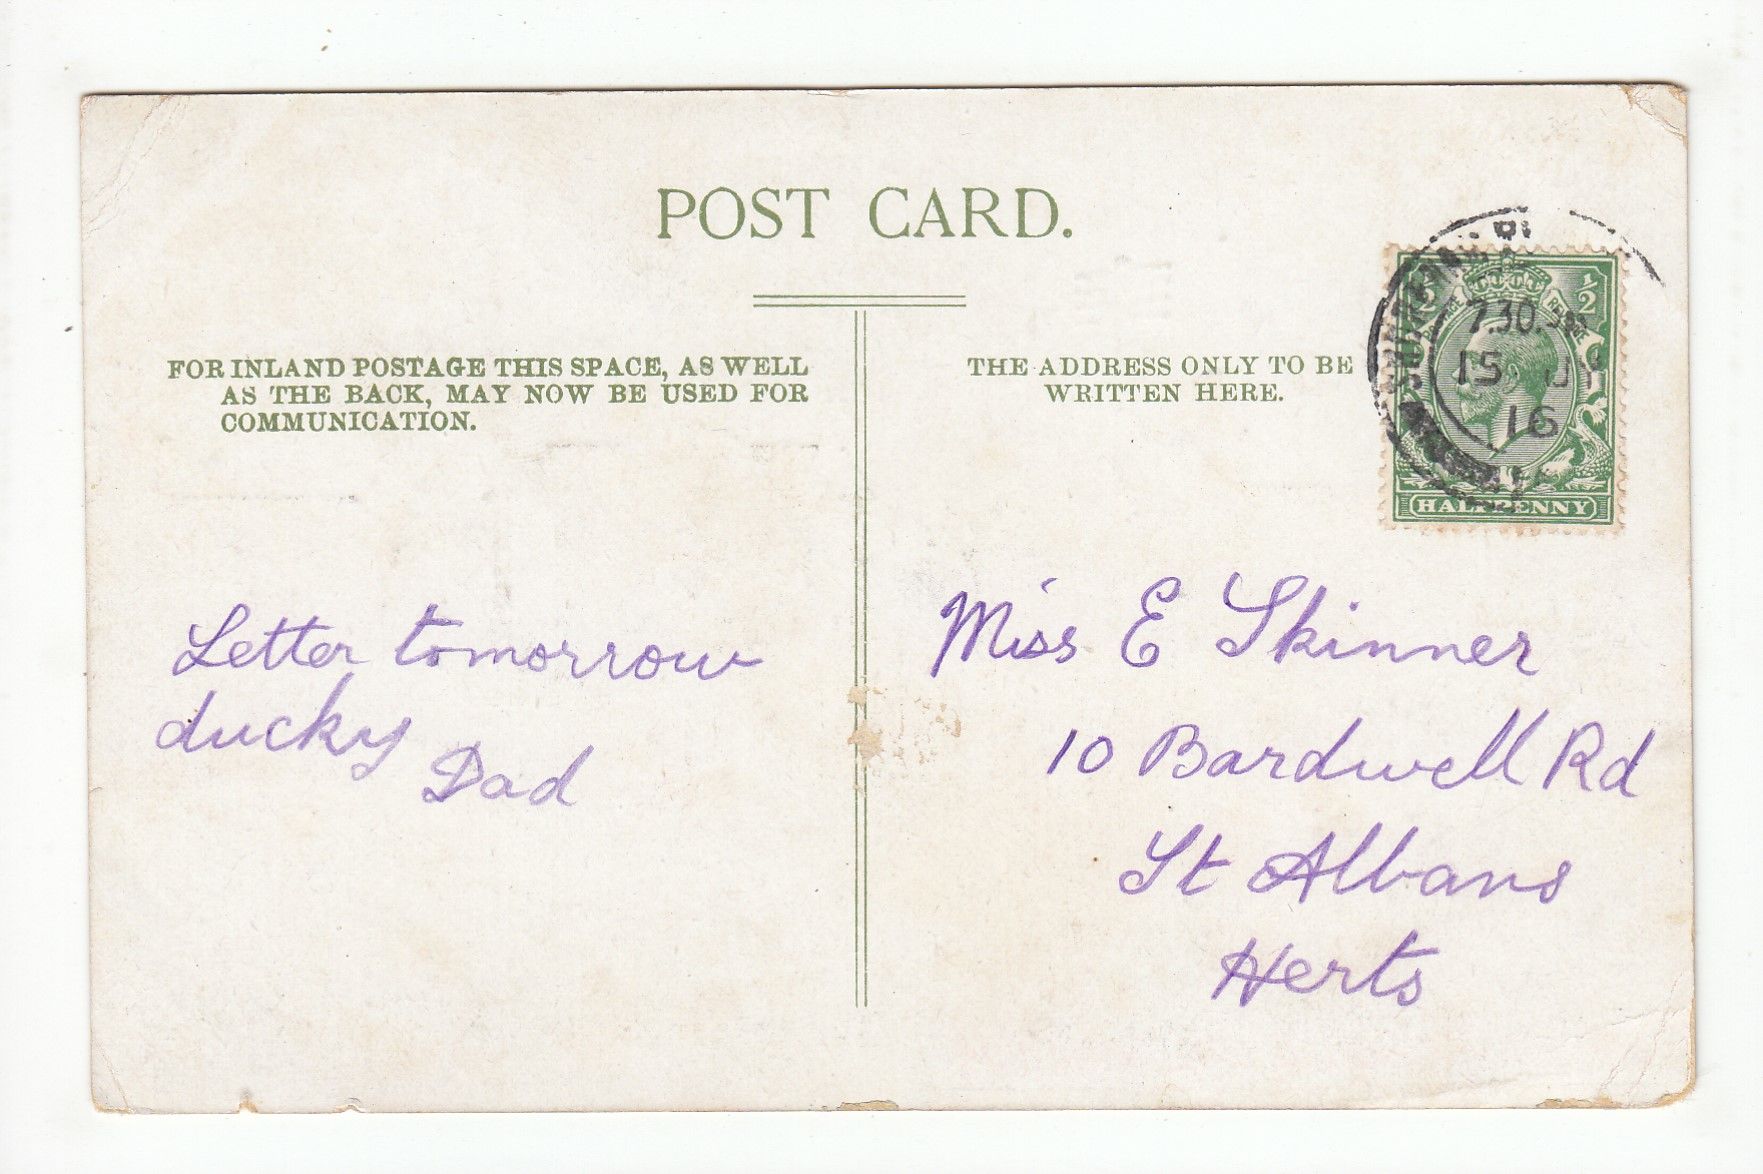 POST CARD.
FOR INLAND POSTAGE THIS SPACE, AS WELL
AS THE BACK, MAY NOW BE USED FOR
COMMUNICATION.
THE ADDRESS ONLY TO BE
WRITTEN HERE.
½ ½
7.30
15 JY
16
HALFPENNY
Letter tomorrow
ducky
Dad
Miss E Skinner
10 Bardwell Rd
St Albans
Herts